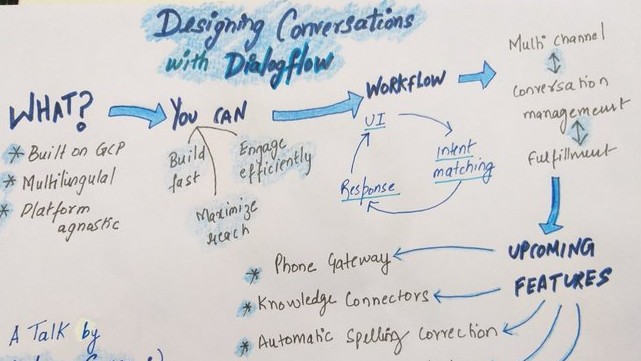 Designing Conversations
with Dialogflow
WHAT?
* Built on GCP
* Multilingulal
* Platform
agnastic
YOU CAN
Build
fast
Maximize
reach
Engage
efficiently
WORKFLOW
UI
Intent
matching
Response
Multi channel
Conversation
management
Fulfillment
UPCOMING
FEATURES
* Phone Gateway
* Knowledge Connectors
* Automatic Spelling Correction
A Talk by